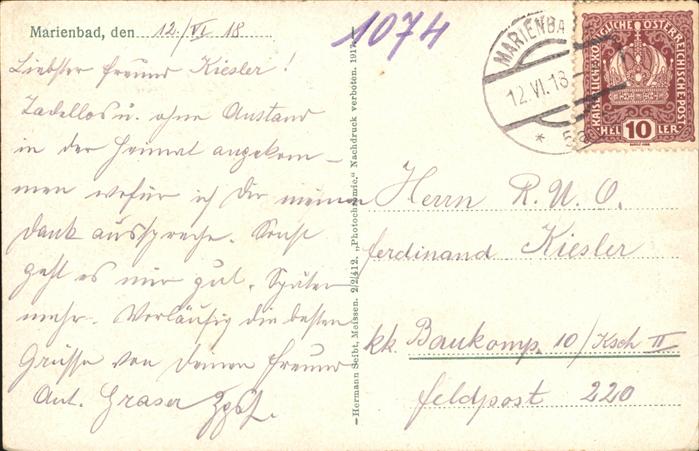 Marienbad, den 12./VI 18
Liebster Freund Kiesler!
Tadellos u. ohne Anstand
in der Heimat angekom-
men wofür ich Dir meinen
Dank ausspreche. Sonst
geht es mir gut. Später
mehr. Vorläufig die besten
Grüsse von Deinem Freund
Ant. Graser Zgsf.
1074
—Hermann Seibt, Meissen. 2/2/412. „Photochromie." Nachdruck verboten. 1917.
MARIENBA
12.VI.18
* 5a
KAISERLICHE KÖNIGLICHE ÖSTERREICHISCHE POST
HEL 10 LER
Herrn R. U. O.
Ferdinand Kiesler
kk. Baukomp. 10/Ksch II
Feldpost 220